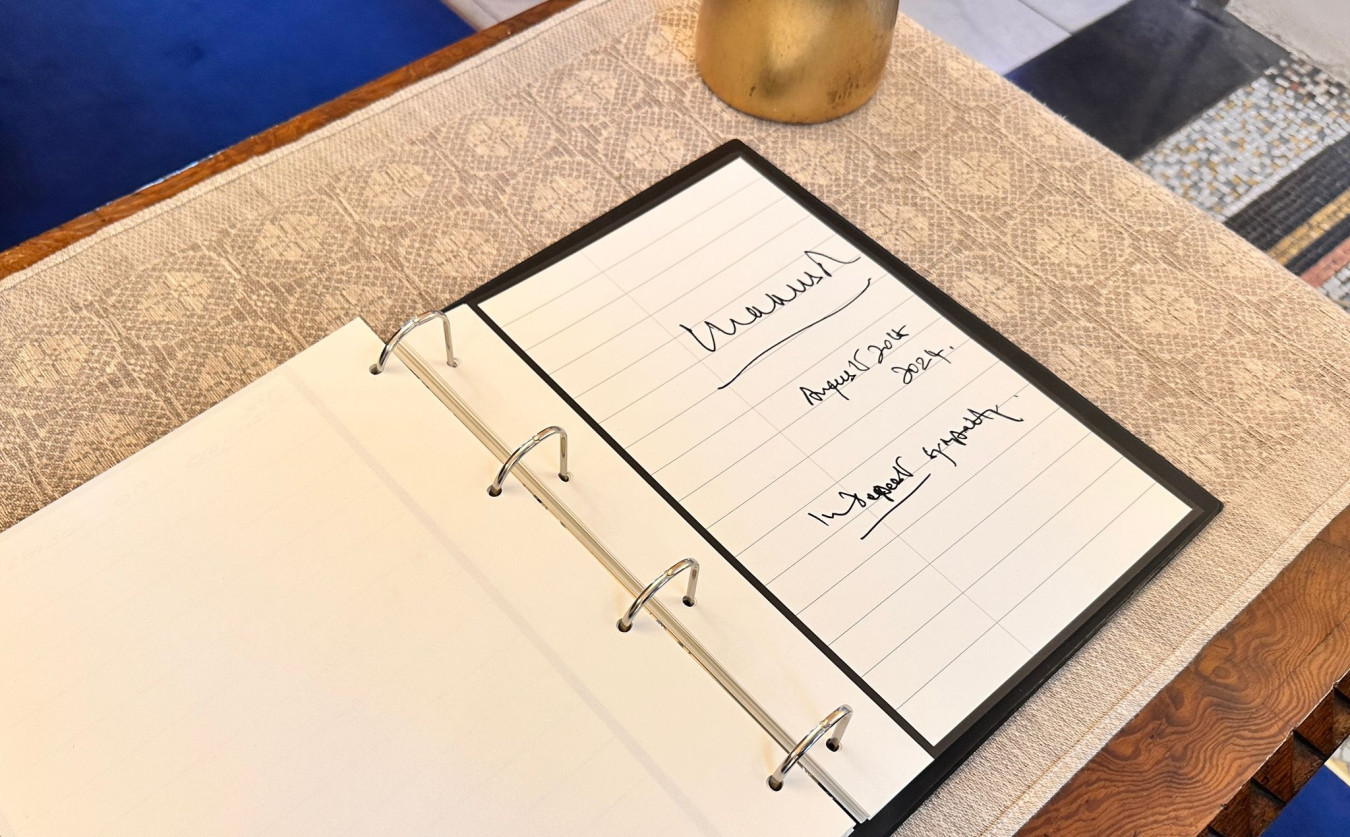 August 20th
2024.
In deepest sympathy.